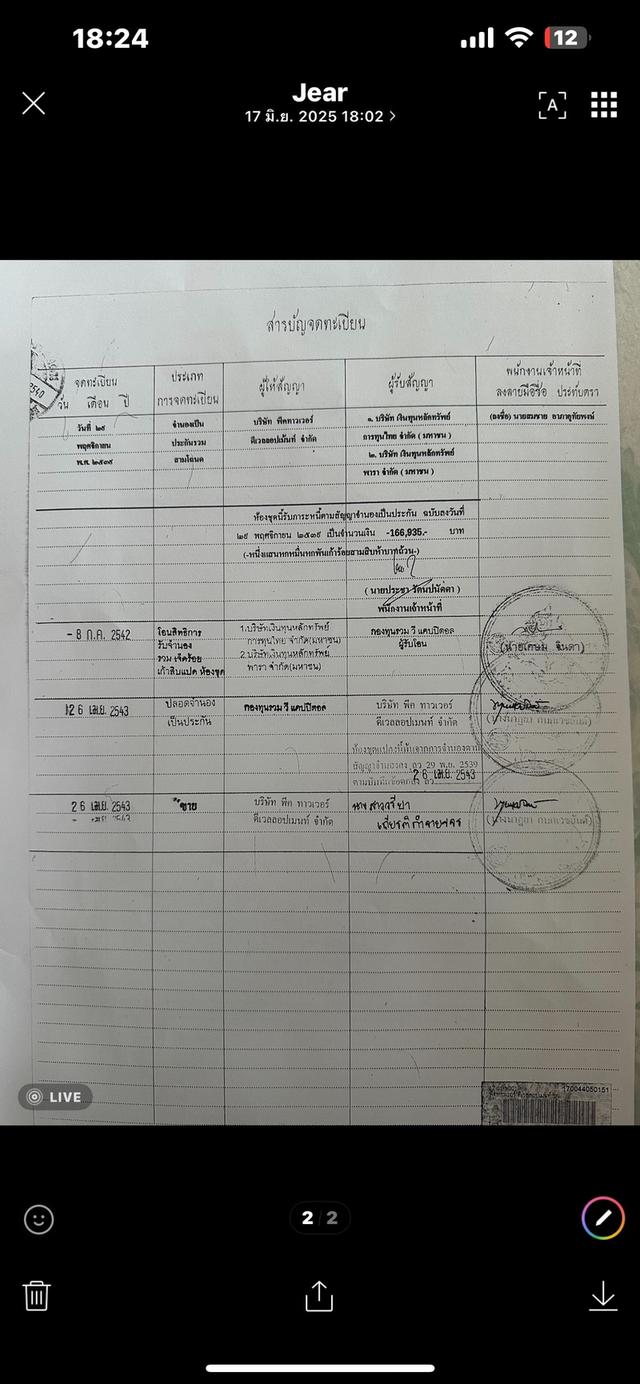 18:24
12
Jear
17 มิ.ย. 2025 18:02 >
A
สารบัญจดทะเบียน
จดทะเบียน
วัน เดือน ปี
ประเภท
การจดทะเบียน
ผู้ให้สัญญา
ผู้รับสัญญา
พนักงานเจ้าหน้าที่
ลงลายมือชื่อ ประทับตรา
วันที่ ๒๙
พฤศจิกายน
พ.ศ. ๒๕๓๙
จำนองเป็น
ประกันรวม
สามโฉนด
บริษัท พีคทาวเวอร์
ดีเวลลอปเม้นท์ จำกัด
๑. บริษัท เงินทุนหลักทรัพย์
การทุนไทย จำกัด ( มหาชน )
๒. บริษัท เงินทุนหลักทรัพย์
พารา จำกัด ( มหาชน )
(ลงชื่อ) นายสมชาย
ห้องชุดนี้รับภาระหนี้ตามสัญญาจำนองเป็นประกัน ฉบับลงวันที่
๒๙ พฤศจิกายน ๒๕๓๙ เป็นจำนวนเงิน -166,935.- บาท
(-หนึ่งแสนหกหมื่นหกพันเก้าร้อยสามสิบห้าบาทถ้วน-)
( นายประชา รัตนปนัดดา )
พนักงานเจ้าหน้าที่
- 8 ก.ค. 2542
โอนสิทธิการ
รับจำนอง
รวม เจ็ดร้อย
เก้าสิบแปด ห้องชุด
1.บริษัทเงินทุนหลักทรัพย์
การทุนไทย จำกัด(มหาชน)
2.บริษัทเงินทุนหลักทรัพย์
พารา จำกัด(มหาชน)
กองทุนรวม วี แคปปิตอล
ผู้รับโอน
(นายเกษม จินดา)
26 เม.ย. 2543
ปลอดจำนอง
เป็นประกัน
กองทุนรวม วี แคปปิตอล
บริษัท พีก ทาวเวอร์
ดีเวลลอปเมนท์ จำกัด
ห้องชุดแปลงนี้พ้นจากการจำนองตาม
สัญญาจำนองลง 29 พ.ย. 2539
26 เม.ย. 2543
26 เม.ย. 2543
ขาย
บริษัท พีก ทาวเวอร์
ดีเวลลอปเมนท์ จำกัด
70044050151
LIVE
2 / 2